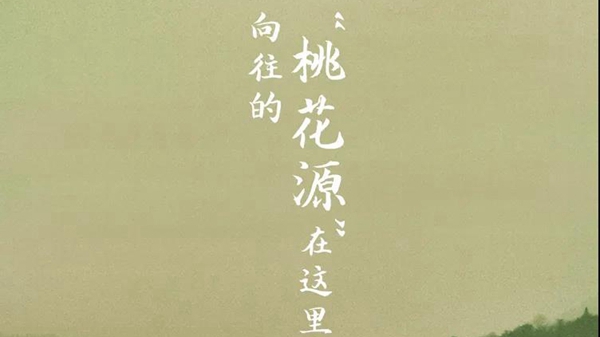 向往的
“桃花源”在这里